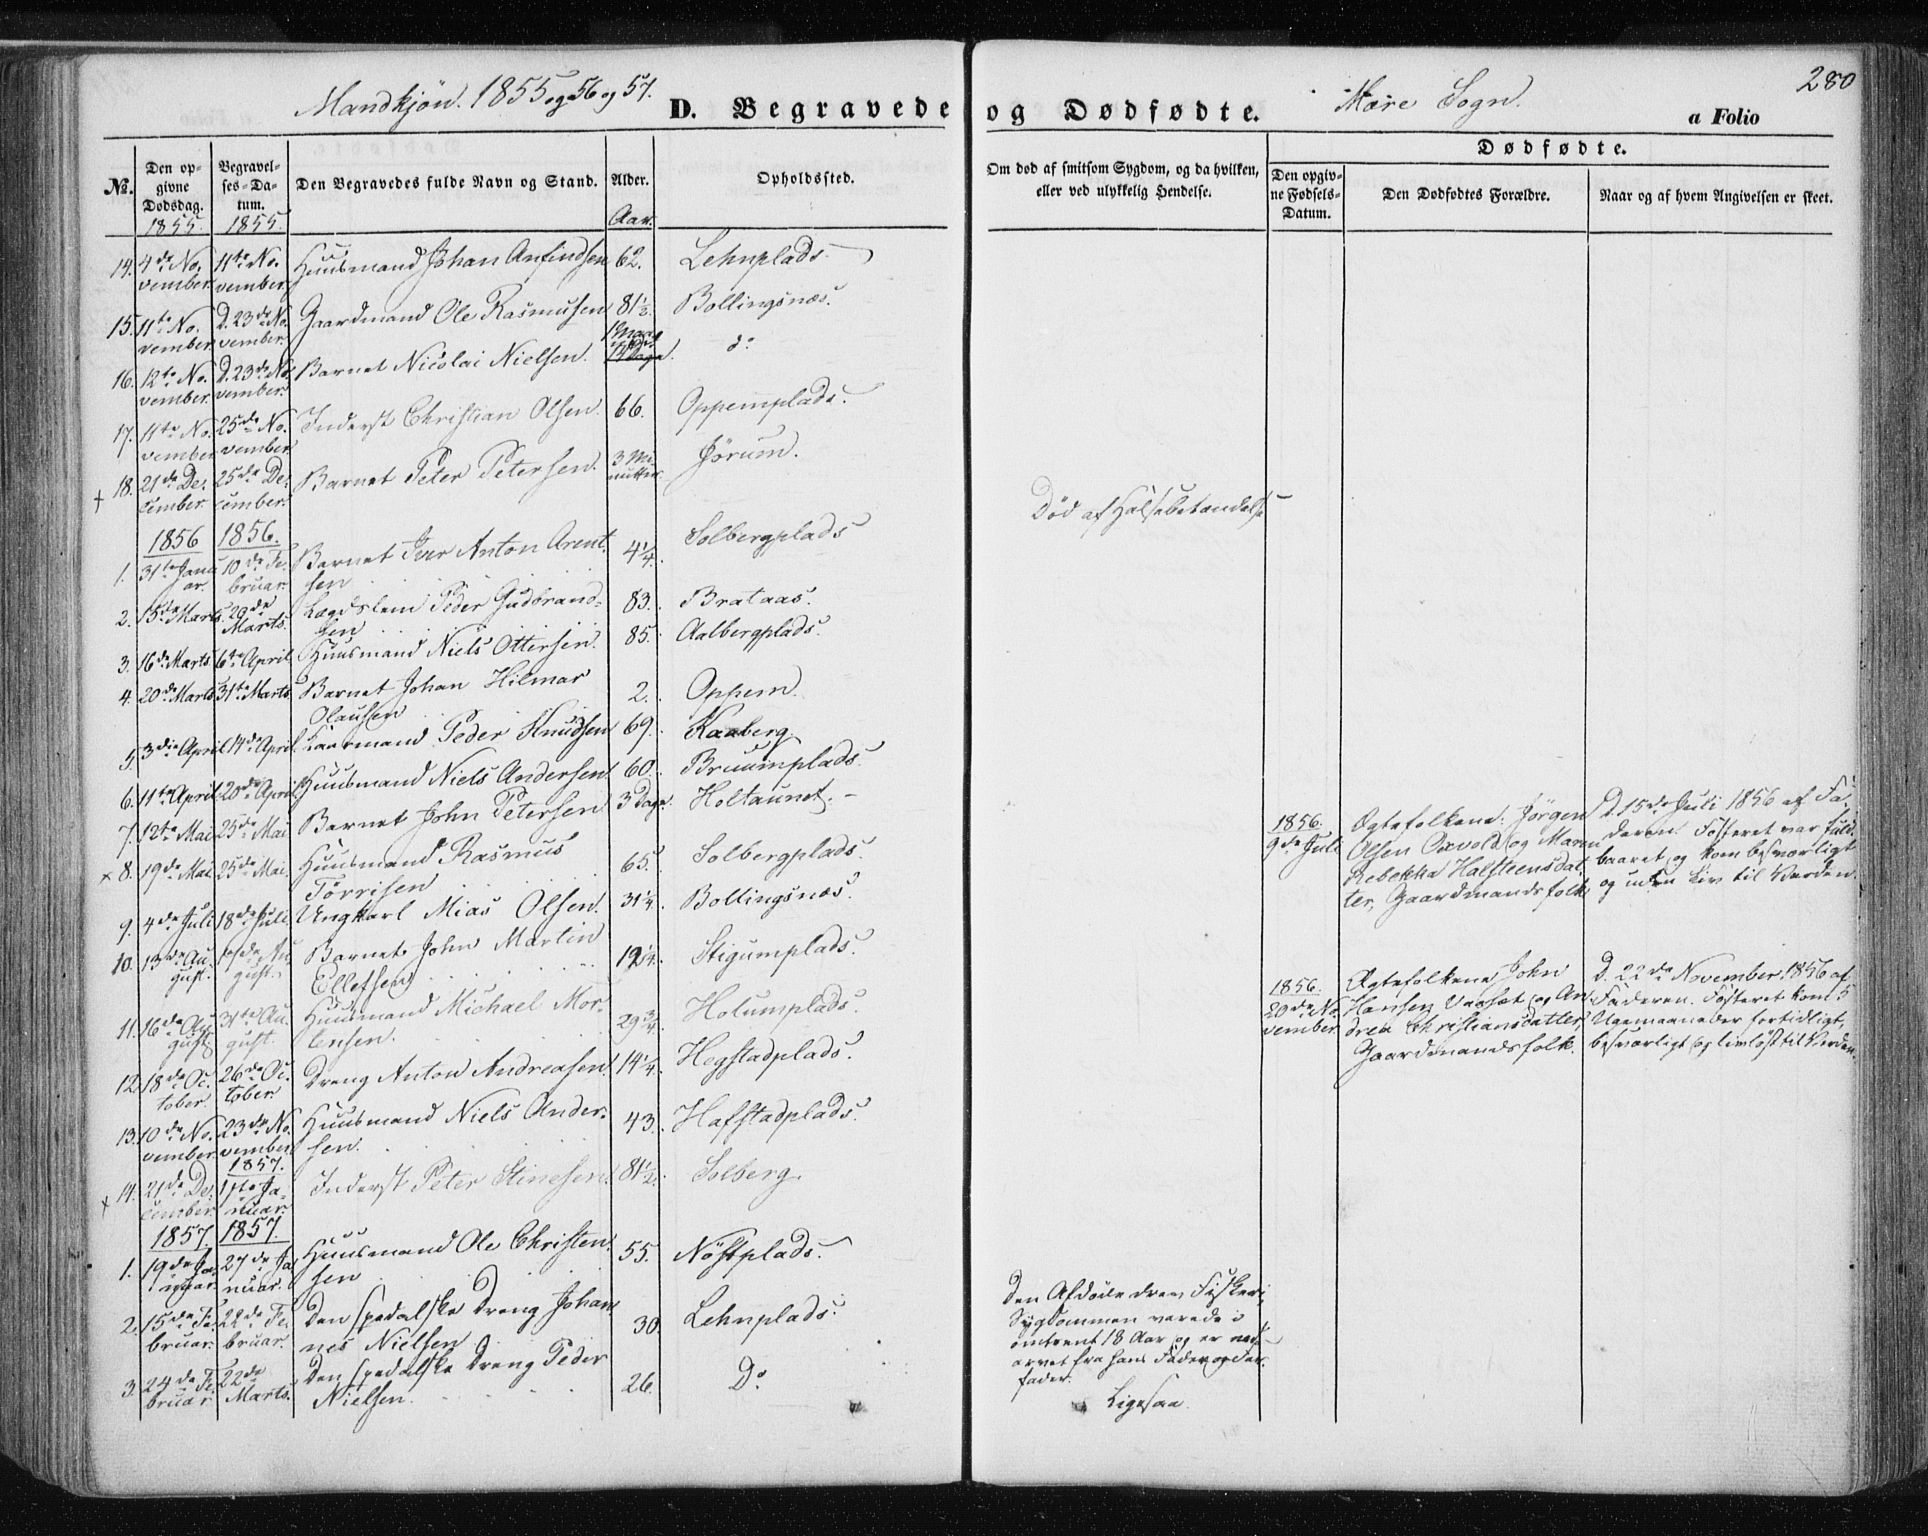 Mandkjøn. 1855 og 56 og 57.
D. Begravede og Dødfødte.
Mære Sogn.
280
a Folio
No. Den opgivne Dødsdag. Begravelses-Datum. Den Begravedes fulde Navn og Stand. Alder. Opholdssted.
Om død af smitsom Sygdom, og da hvilken, eller ved ulykkelig Hendelse.
Dødfødte.
Den opgivne Fødsels-Datum. Den Dødfødtes Forældre. Naar og af hvem Angivelsen er skeet.
1855. 1855. Aar.
14. 4de November. 11te November. Huusmand Johan Anfindsen 62. Lehnplads.
15. 11te November. D. 23de November. Gaardmand Ole Rasmussen 81 1/2. Bollingsnæs.
16. 12te November. D. 23de November. Barnet Nicolai Nielsen. 14 Dage. do
17. 11te November. 25de November. Inderst Christian Olsen. 66. Oppemplads.
+ 18. 21de December. 25de December. Barnet Peter Petersen. 3 Minutter. Jørum.
1856 1856.
1. 31te Januar. 10de Februar. Barnet Iver Anton Arentsen 4 1/4. Solbergplads
Død af Halsebetændelse
2. 15de Marts. 20de Marts. Lægdslem Peder Gudbrandsen 83. Brataas.
3. 16de Marts 6te April Huusmand Niels Ottersen. 85. Aalbergplads.
4. 20de Marts 31te Marts Barnet Johan Hilmar Olausen 2. Oppem.
5. 3die April 14de April. Kaarmand Peder Knudsen 69. Kaaberg.
6. 11te April 20de April Huusmand Niels Andersen 60. Bruumplads.
7. 12te Mai 25de Mai Barnet John Petersen 3 Dage. Holtaunet.
x 8. 19de Mai. 25de Mai. Huusmand Rasmus Tørrisen 65. Solbergplads.
9. 4de Juli 18de Juli Ungkarl Mias Olsen. 31 1/4. Bollingsnæs.
10. 13de August. August. Barnet John Martin Ellefsen 1/4. Stigumplads.
11. 16de August 31te August. Huusmand Michael Mortensen. 29 3/4. Holumplads.
12. 18de October. 26de October Dreng Anton Andreasen. 14 1/4. Hegstadplads.
13. 10de November. 23de November Huusmand Niels Andersen. 43. Hafstadplads.
1857.
x 14. 21de December. 1ste Januar. Inderst Peter Stinesen. 81 1/2. Solberg.
1857. 1857.
1. 19de Januar. 27de Januar. Huusmand Ole Christensen 55. Nøstplads.
2. 15de Februar. 22de Februar. Den spedalske Dreng Johannes Nielsen 30. Lehnplads.
3. 24de Februar. 22de Marts. Den spedalske Dreng Peder Nielsen. 26. Do
Den Afdøde drev Fiskeri,
Sygdommen varede i
omtrent 18 Aar og er nedarvet fra hans Fader og Farfader.
Ligesaa.
1856.
9de Juli
Ægtefolkene: Jørgen
Olsen Oxvold og Maren
Rebekka Halsteensdatter, Gaardmandsfolk
D. 15de Juli 1856 af Faderen. Fosteret var fuldbaaret og kom besværligt
og uden Liv til Verden.
1856.
20de November
Ægtefolkene John
Hansen Vaaset og Andrea Christiansdatter,
Gaardmandsfolk.
D. 22de November 1856 af
Faderen. Fosteret kom 5
Uger fortidligt,
besværligt og livløst til Verden.